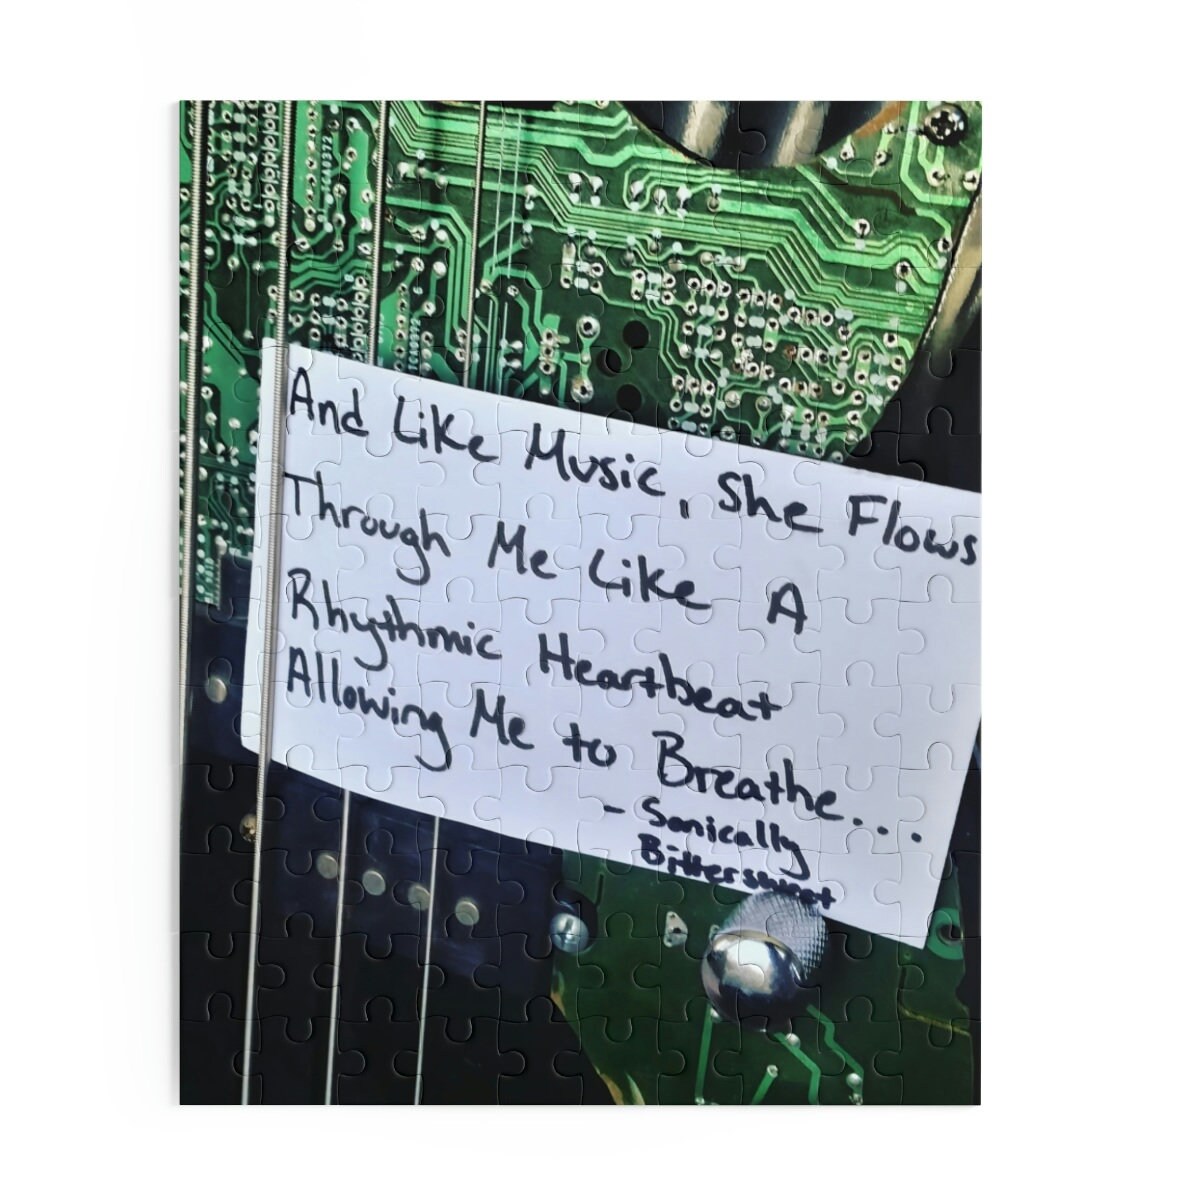 TCA0372
TCA0372
And Like Music, She Flows
Through Me Like A
Rhythmic Heartbeat
Allowing Me to Breathe...
- Sonically
Bittersweet